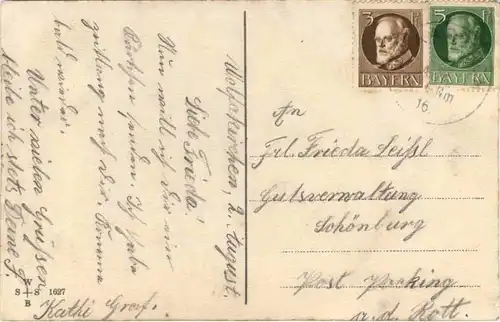 Wolfakirchen, 2. August.
Liebe Frieda!
Nun will ich Dir ein
Kärtchen senden. Ich habe
nach Dir. Komme
bald wieder.
Unter vielen Grüßen
bleibe ich stets Deine F.
Kathi Graf.
W
S S
B
1627
3 Pf
BAYERN
5 Pf
BAYERN
16
An
Frl. Frieda Leißl
Gutsverwaltung
Schönburg
Post Pocking
a. d. Rott.